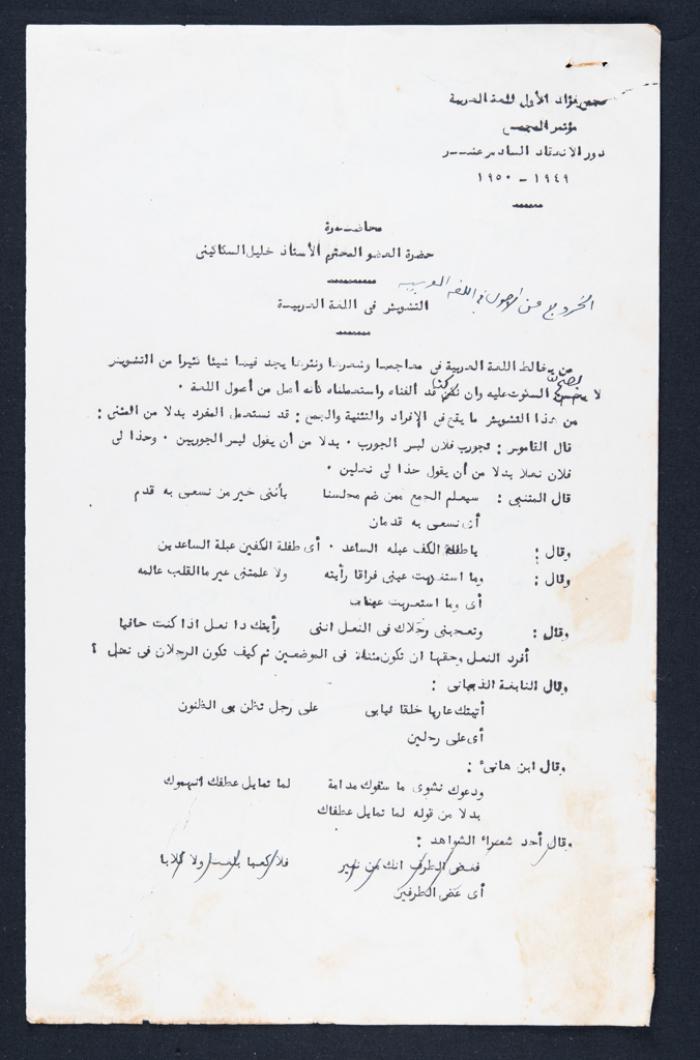 مجمع فؤاد الأول للغة العربية
مؤتمر المجمع
دور الانعقاد السادس عشر
١٩٤٩ - ١٩٥٠
محاضرة
حضرة العضو المحترم الأستاذ خليل السكاكيني
الخروج عن الأصول في اللغة العربية
التشويش فى اللغة العربية
من يخالط اللغة العربية فى معاجمها وشعرها ونثرها يجد فيها شيئا كثيرا من التشويش
لا يصح السكوت عليه وان كنا قد ألفناه واستعملناه كأنه أصل من أصول اللغة .
من هذا التشويش ما يقع فى الافراد والتثنية والجمع : قد نستعمل المفرد بدلا من المثنى :
قال القاموس : تجورب فلان لبس الجورب . بدلا من أن يقول لبس الجوربين . وحذا لى
فلان نعلا بدلا من أن يقول حذا لى نعلين .
قال المتنبى : سيعلم الجمع ممن ضم مجلسنا بأننى خير من تسعى به قدم
أى تسعى به قدمان
وقال : ياطفلة الكف عبلة الساعد . أى طفلة الكفين عبلة الساعدين
وقال : وما استغربت عينى فراقا رأيته ولا علمتنى غير ما القلب عالمه
أى وما استغربت عيناى
وقال : وتعجبنى رجلاك فى النعل اننى رأيتك ذا نعل اذا كنت حافيا
أفرد النعل وحقها ان تكون مثناة فى الموضعين ثم كيف تكون الرجلان فى نعل ؟
وقال النابغة الذبيانى :
أتيتك عاريا خلقا ثيابى على رجل تظن بى الظنون
أى على رجلين
وقال ابن هانئ :
ودعوك نشوى ما سقوك مدامة لما تمايل عطفك اتهموك
بدلا من قوله لما تمايل عطفاك
وقال أحد شعراء الشواهد :
فغض الطرف انك من نمير فلا كعبا بلغت ولا كلابا
أى غض الطرفين